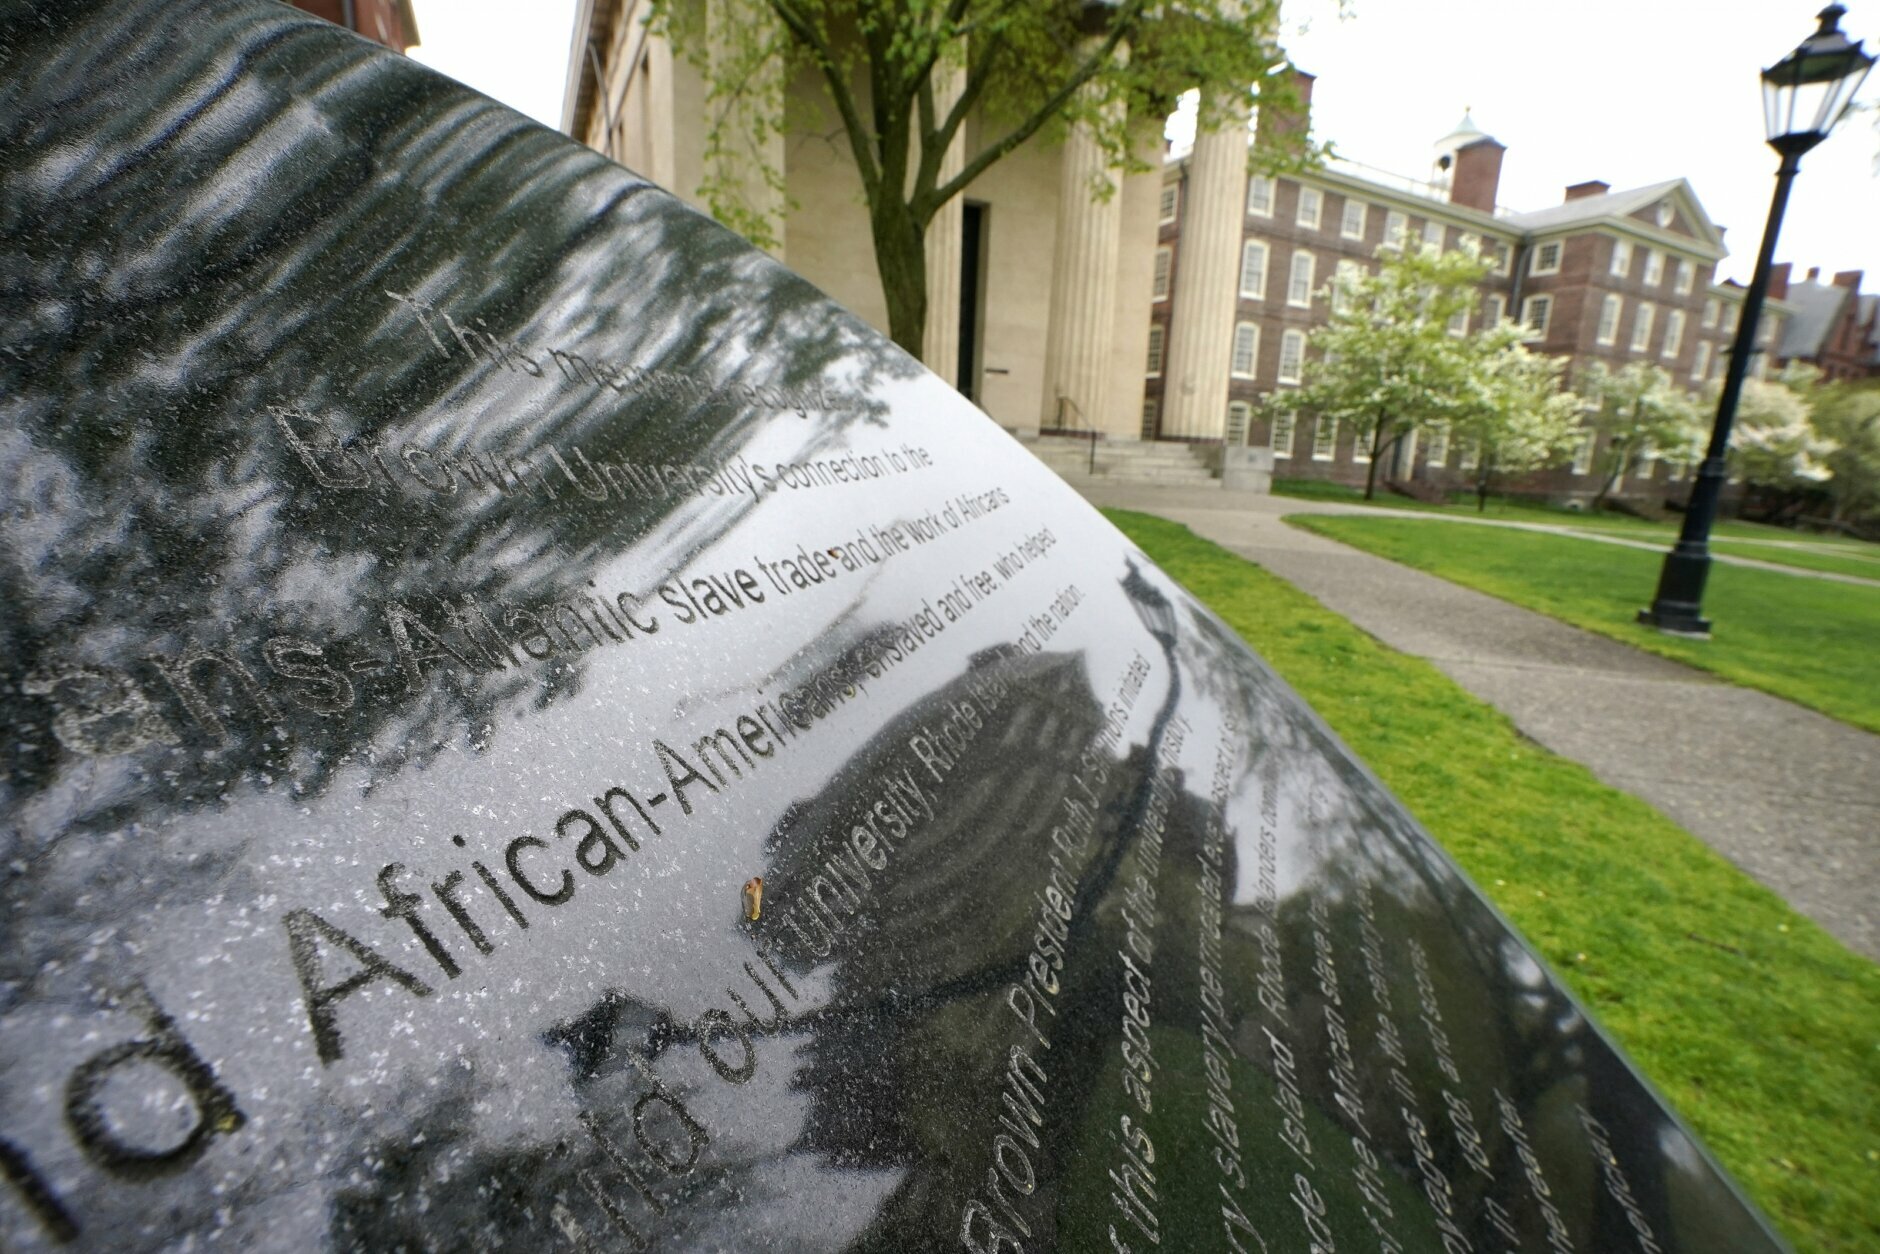 This memorial recognizes
Brown University's connection to the
ans-Atlantic slave trade and the work of Africans
nd African-Americans, enslaved and free, who helped
ild our university, Rhode Island, and the nation.
Brown President Ruth J. Simmons initiated
f this aspect of the university's history.
y slavery permeated every aspect of
de Island. Rhode Islanders
of the African slave
oyages in the century
in 1808 and scores
thereafter
merican